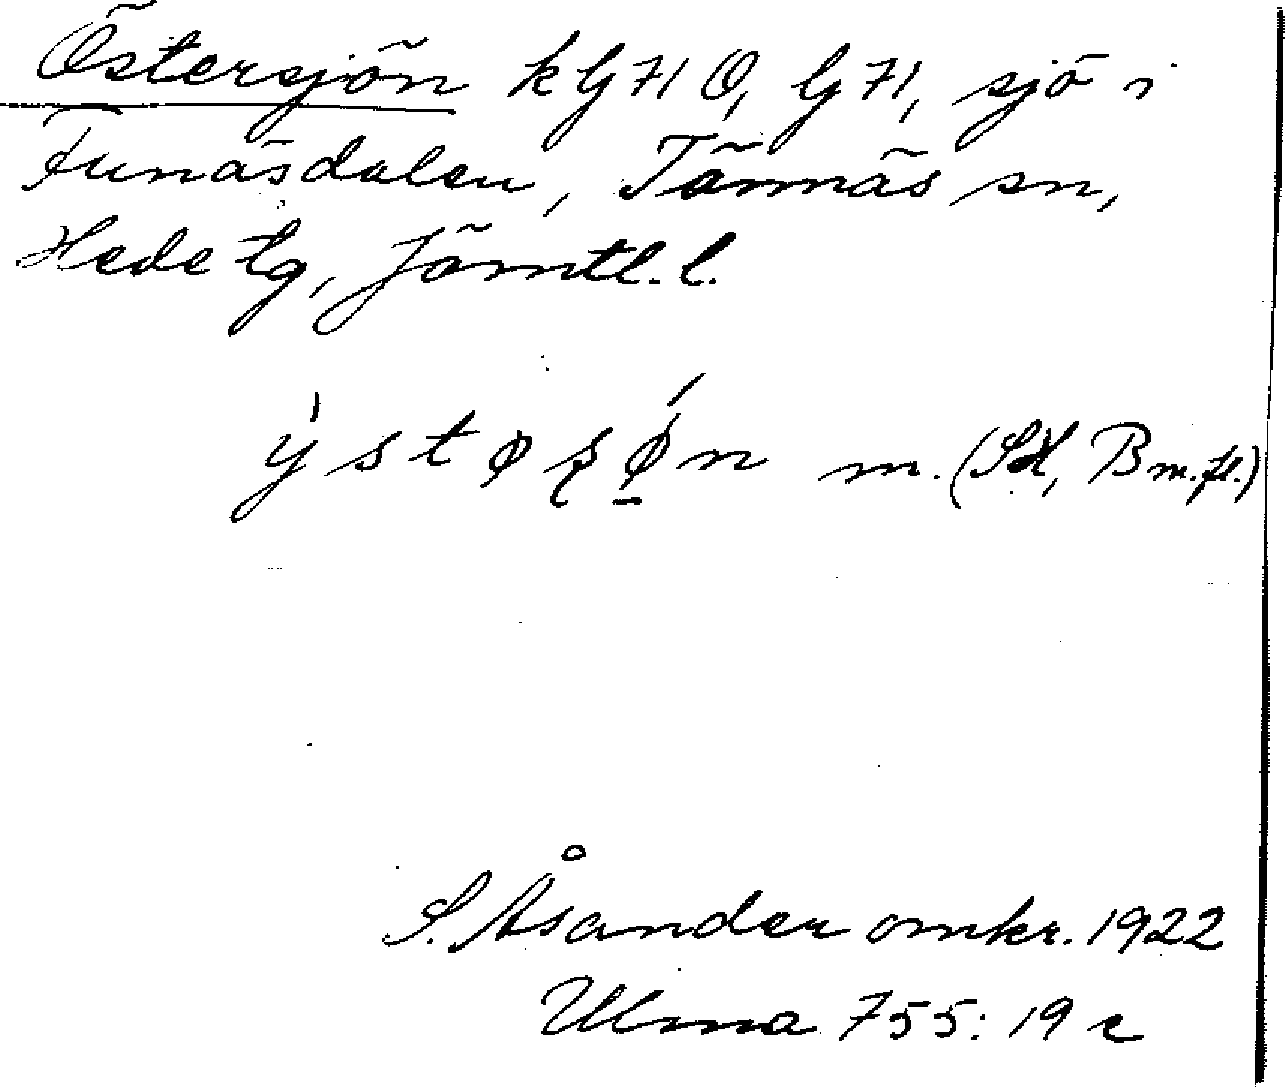 Östersjön kG71Ö, G71, sjö i
Funäsdalen, Tännäs sn,
Hede tg, Jämtl. l.
ỳstøṣǿ̲n m. (SH, B m.fl.)
S. Åsander omkr. 1922
Ulma 755: 19 c